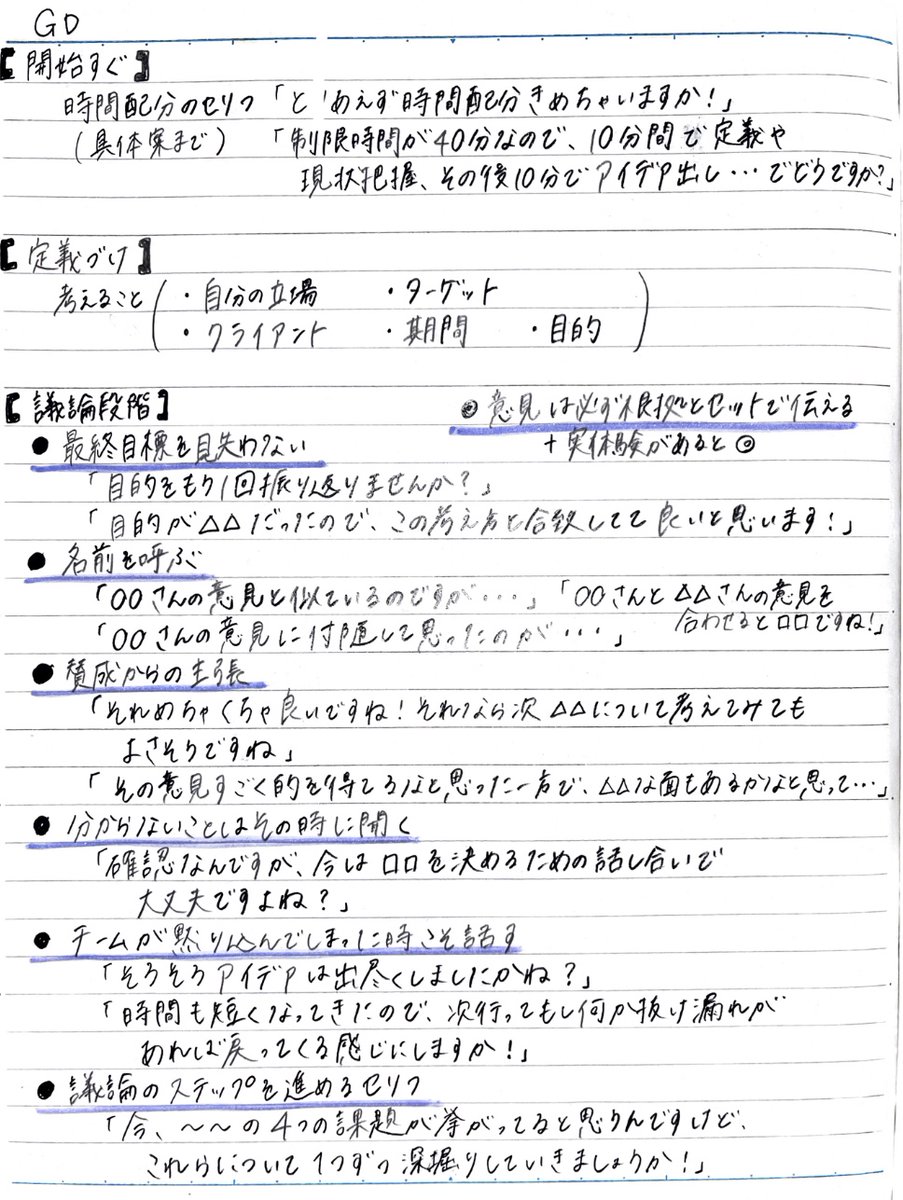 GD
【開始すぐ】
時間配分のセリフ「とりあえず時間配分きめちゃいますか!」
(具体案まで)「制限時間が40分なので、10分間で定義や
現状把握、その後10分でアイデア出し…でどうですか?」
【定義づけ】
考えること(・自分の立場 ・ターゲット
・クライアント ・期間 ・目的)
【議論段階】
◎意見は必ず根拠とセットで伝える
+実体験があると◎
●最終目標を見失わない
「目的をもう1回振り返りませんか?」
「目的が△△だったので、この考え方と合致してて良いと思います!」
●名前を呼ぶ
「○○さんの意見と似ているのですが・・・」「○○さんと△△さんの意見を
合わせると□□ですね!」
「○○さんの意見に付随して思ったのが・・・」
●賛成からの主張
「それめちゃくちゃ良いですね!それなら次△△について考えてみても
よさそうですね」
「その意見すごく的を得てるなと思った一方で、△△な面もあるかなと思って…」
●分からないことはその時に聞く
「確認なんですが、今は□□を決めるための話し合いで
大丈夫ですよね?」
●チームが黙り込んでしまった時こそ話す
「そろそろアイデアは出尽くしましたかね?」
「時間も短くなってきたので、次行ってもし何か抜け漏れが
あれば戻ってくる感じにしますか!」
●議論のステップを進めるセリフ
「今、〜〜の4つの課題が挙がってると思うんですけど、
これらについて1つずつ深掘りしていきましょうか!」